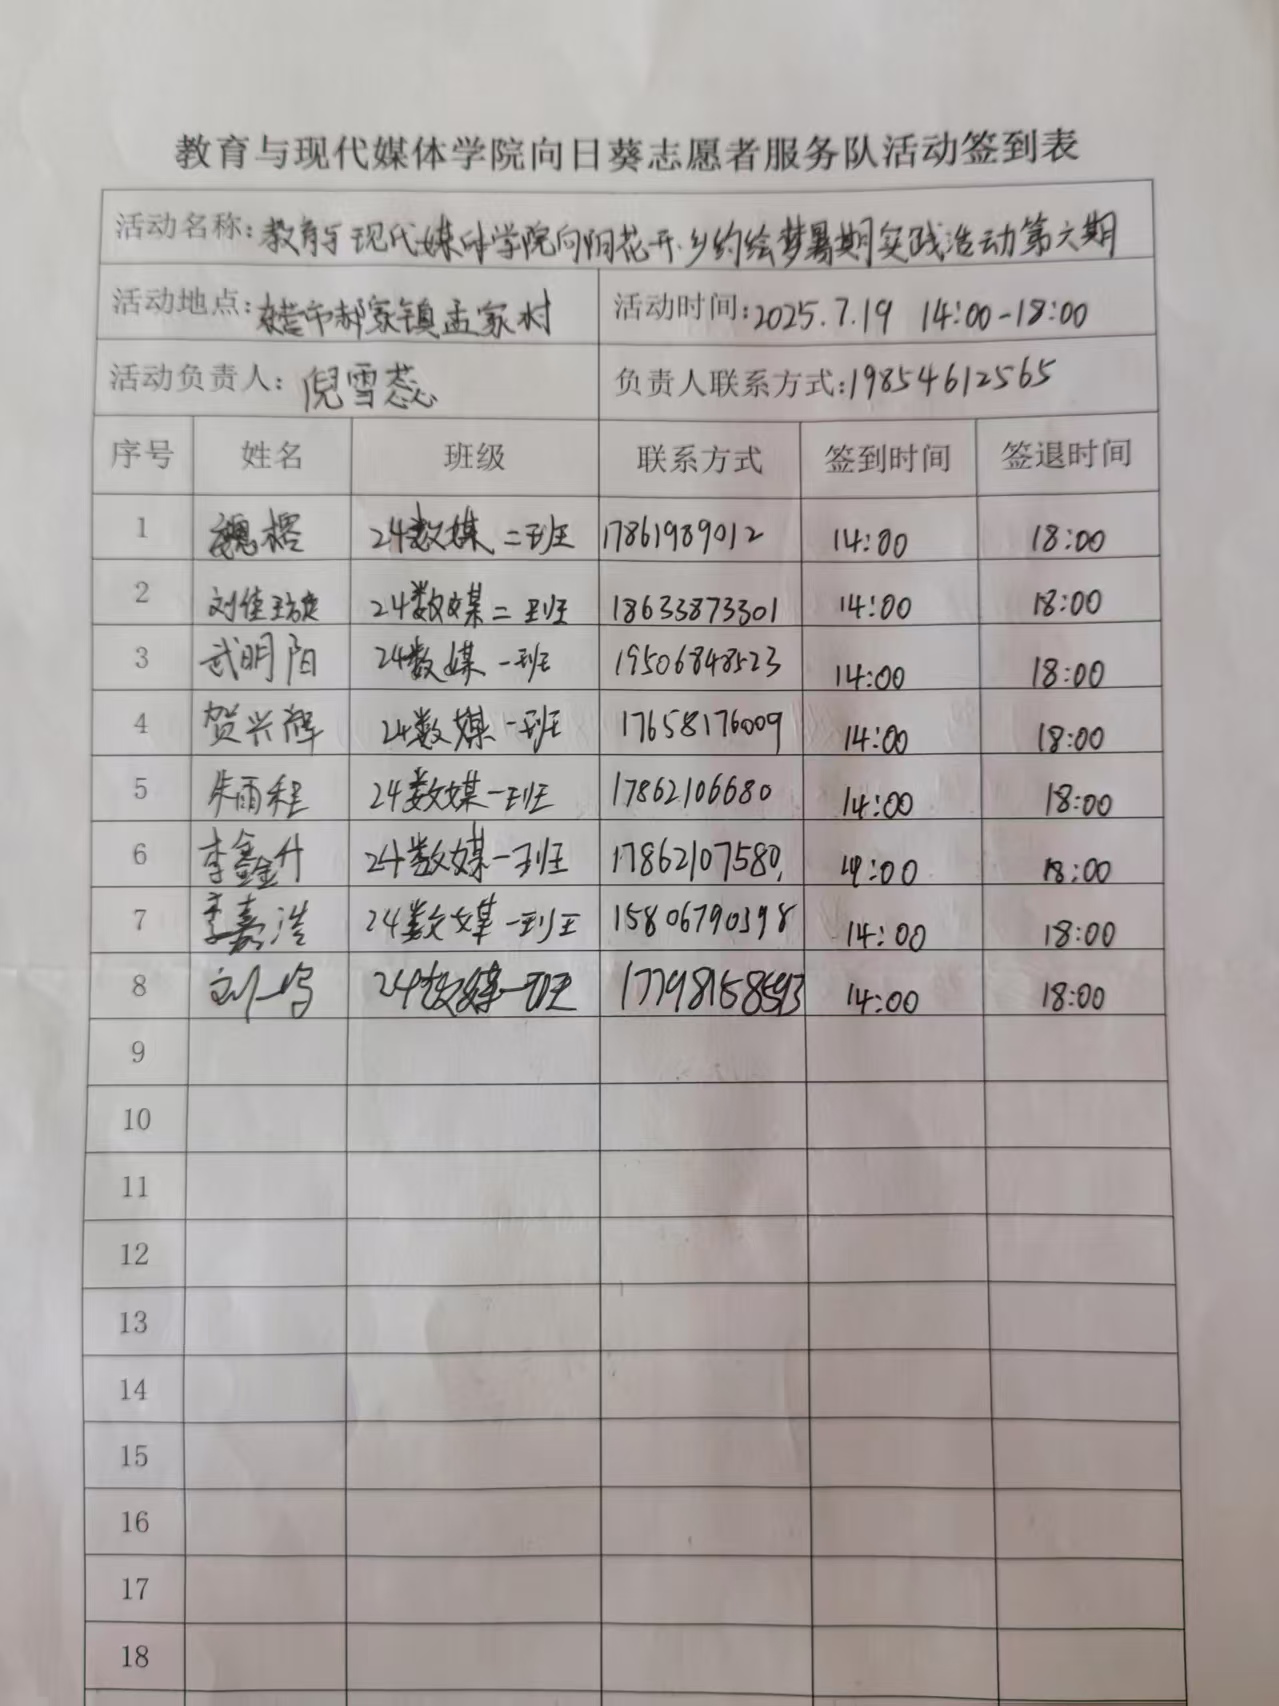 教育与现代媒体学院向日葵志愿者服务队活动签到表
活动名称: 教育与现代媒体学院向阳花开·乡约绘梦暑期实践活动第六期
活动地点: 郝家镇孟家村 活动时间: 2025.7.19 14:00-18:00
活动负责人: 倪雪蕊 负责人联系方式: 19854612565
序号 姓名 班级 联系方式 签到时间 签退时间
1 魏榕 24数媒二班 17861989012 14:00 18:00
2 刘佳璇 24数媒二班 18633873301 14:00 18:00
3 武明阳 24数媒一班 19506848523 14:00 18:00
4 贺兴辉 24数媒一班 17658176009 14:00 18:00
5 朱雨程 24数媒一班 17862106680 14:00 18:00
6 李鑫升 24数媒一班 17862107580 14:00 18:00
7 李嘉浩 24数媒一班 15806790398 14:00 18:00
8 刘一鸣 24数媒一班 14:00 18:00
9
10
11
12
13
14
15
16
17
18